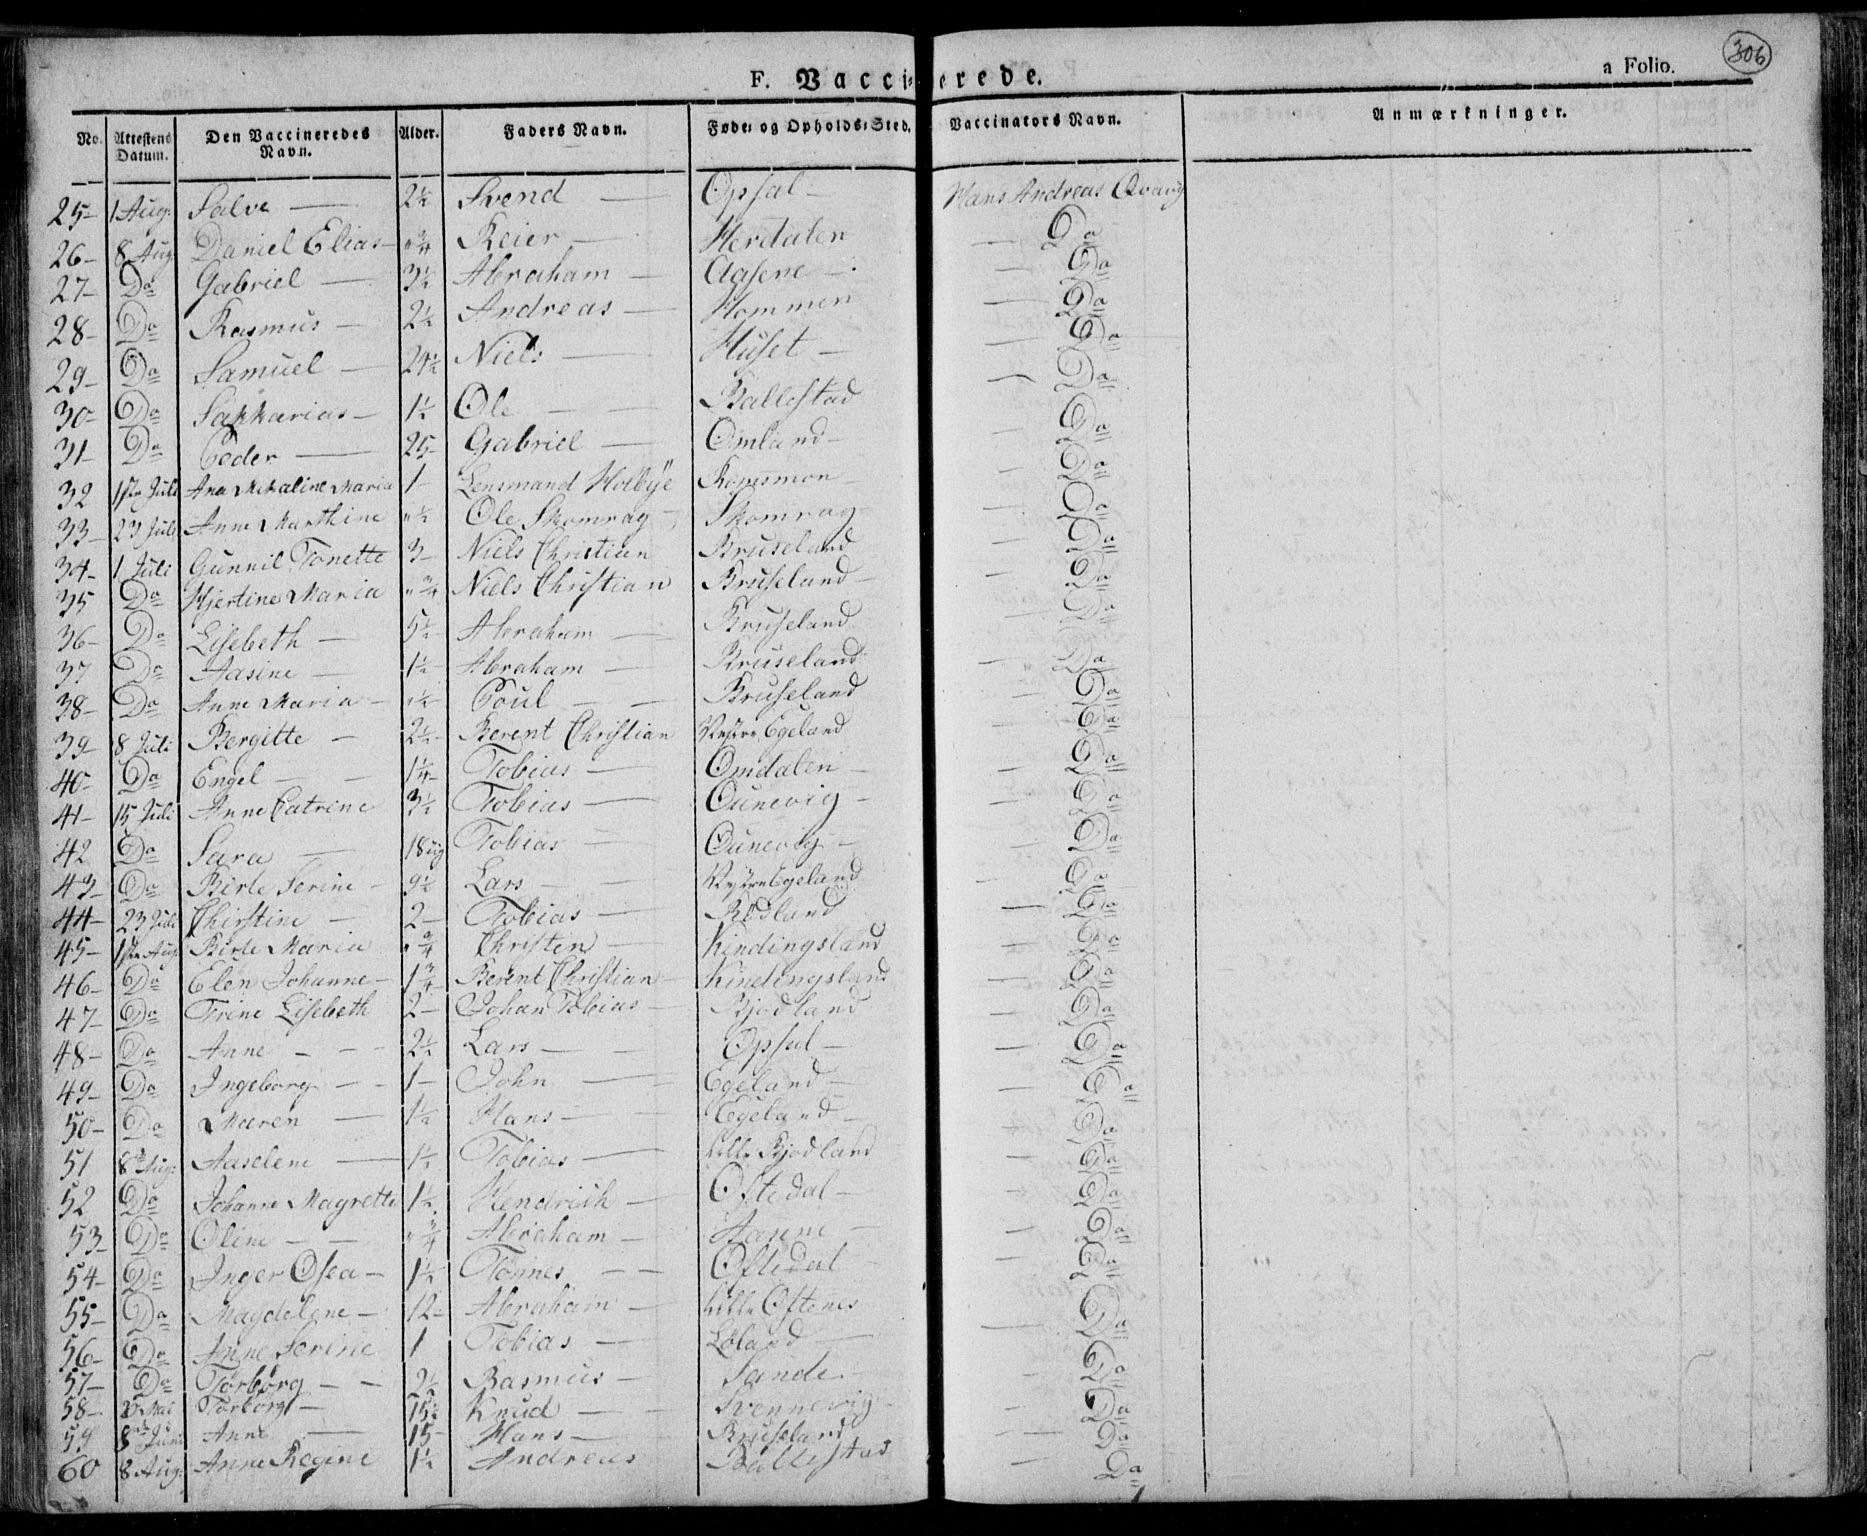 306
F. Vaccinerede.
a Folio.
No. Attestens Datum. Den Vaccineredes Navn. Alder. Faders Navn. Føde- og Opholds-Sted. Vaccinators Navn. Anmærkninger.
25- 1 Aug: Salve — 2½ Svend — Opsal — Hans Andreas Qvavig
26- 8 Aug: Daniel Elias - " ¾ Reier — Herdalen — Do
27- Do Gabriel — 3½ Abraham — Aasene — Do
28- Do Rasmus — 2½ Andreas — Hommen — Do
29- Do Samuel — 24½ Niels — Huset — Do
30- Do Sakkarias — 1½ Ole — Ballestad — Do
31- Do Peder — 25- Gabriel — Omland — Do
32 1ste Juli Ane Mikaline Maria 1- Lensmand Holbye Konsmon — Do
33- 23 Juli Anne Marthine " ½ Ole Skomrag — Skomrag — Do
34- 1 Juli Gunnil Tonette 3- Niels Christian Bruseland — Do
35 Do Hjertine Maria " ¾ Niels Christian Bruseland — Do
36- Do Lisebeth — 5½ Abraham — Bruseland — Do
37 Do Aasine — 1½ Abraham — Bruseland — Do
38- Do Anne Maria — " ½ Poul — Bruseland — Do
39- 8 Juli Bergitte — 2½ Berent Christian Vestre Egeland — Do
40- Do Engel — 1¼ Tobias — Omdalen — Do
41- 15 Juli Anne Catrine 3½ Tobias — Ounevig — Do
42 Do Sara — 18 Tobias — Ounevig — Do
43- Do Birte Serine — 9½ Lars — Vestre Egeland — Do
44- 23 Juli Chirstine — 2- Tobias — Rosland — Do
45- 1ste Aug: Birte Maria " ¾ Christen — Kindingsland — Do
46- Do Elen Johanne — 1¾ Berent Christian — Kindingsland — Do
47- Do Trine Lisebeth 2- Johan Tobias — Bjodland — Do
48- Do Anne — 2½ Lars — Opsal — Do
49- Do Ingeborg — 1- John — Egeland — Do
50- Do Maren — 1½ Hans — Egeland — Do
51 8 Aug: Aaselene — 1½ Tobias — Lille Bjodland — Do
52 Do Johanne Magrette 1½ Hendrich — Oftedal — Do
53- Do Oline — " ¾ Abraham — Aasene — Do
54- Do Inger Osea — 1½ Tønnes — Oftedal — Do
55- Do Magdelene — 12- Abraham — Lille Oftenes — Do
56- Do Anne Serine 1 Tobias — Loland — Do
57- Do Torborg — 2½ Rasmus — Sande — Do
58- Mai Torborg — 15½ Knud — Svennevig — Do
59 8 Juni Anne — 15- Hans — Bruseland — Do
60 8 Aug: Anne Regine 1½ Andreas Ballestad — Do